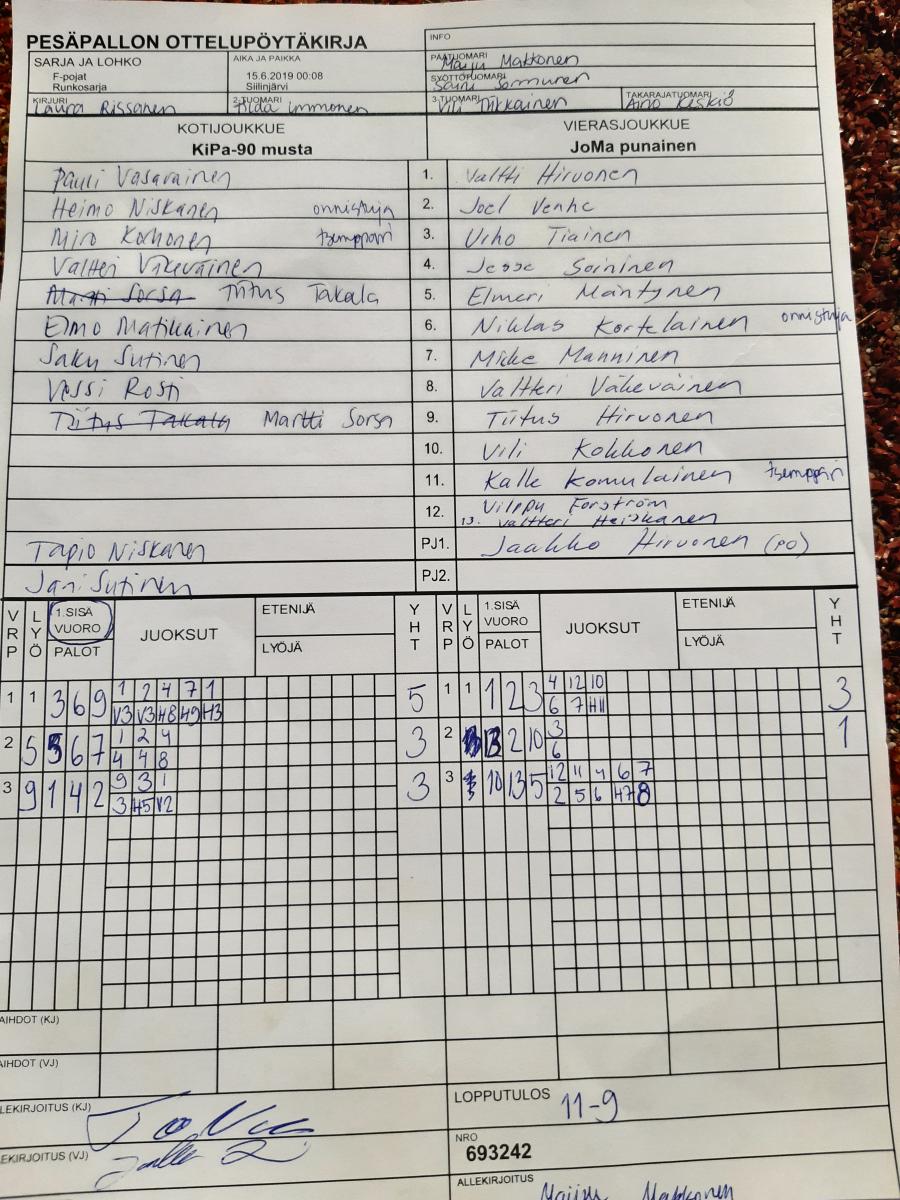 PESÄPALLON OTTELUPÖYTÄKIRJA
INFO
SARJA JA LOHKO
F-pojat
Runkosarja
AIKA JA PAIKKA
15.6.2019 00:08
Siilinjärvi
PÄÄTUOMARI
Maiju Makkonen
SYÖTTÖTUOMARI
Sormunen
KIRJURI
Laura Rissanen
2-TUOMARI
Immonen
3-TUOMARI
Tikkainen
TAKARAJATUOMARI
Aino Keskiö
KOTIJOUKKUE
KiPa-90 musta
VIERASJOUKKUE
JoMa punainen
Pauli Vasarainen 1. Valtti Hirvonen
Heimo Niskanen onnistuja 2. Joel Venho
Miro Korhonen tsemppari 3. Urho Tiainen
Valtteri Väkeväinen 4. Jesse Soininen
Martti Sorsa Tiitus Takala 5. Elmeri Mäntynen
Elmo Matikainen 6. Niklas Kortelainen onnistuja
Saku Sutinen 7. Mikke Manninen
Vessi Rosti 8. Valtteri Väkeväinen
Tiitus Takala Martti Sorsa 9. Tiitus Hirvonen
10. Vili Kokkonen
11. Kalle Komulainen tsemppari
12. Vilppu Forström
13. Valtteri Heiskanen
Tapio Niskanen PJ1. Jaakko Hirvonen (PO)
Jani Sutinen PJ2.
VRP LYÖ 1.SISÄ VUORO PALOT JUOKSUT ETENIJÄ LYÖJÄ YHT VRP LYÖ 1.SISÄ VUORO PALOT JUOKSUT ETENIJÄ LYÖJÄ YHT
1 1 3 6 9 1 2 4 7 1 5 1 1 1 2 3 4 12 10 3
V3 V3 H8 H9 H3 6 7 H11
2 5 5 6 7 1 2 4 3 2 2 10 3 1
4 4 8 6
3 9 1 4 2 9 3 1 3 3 10 13 5 12 11 4 6 7
3 H5 V2 2 5 6 H7 8
AIHDOT (KJ)
AIHDOT (VJ)
LEKIRJOITUS (KJ)
LOPPUTULOS 11-9
EKIRJOITUS (VJ)
NRO
693242
ALLEKIRJOITUS
Maiju Makkonen